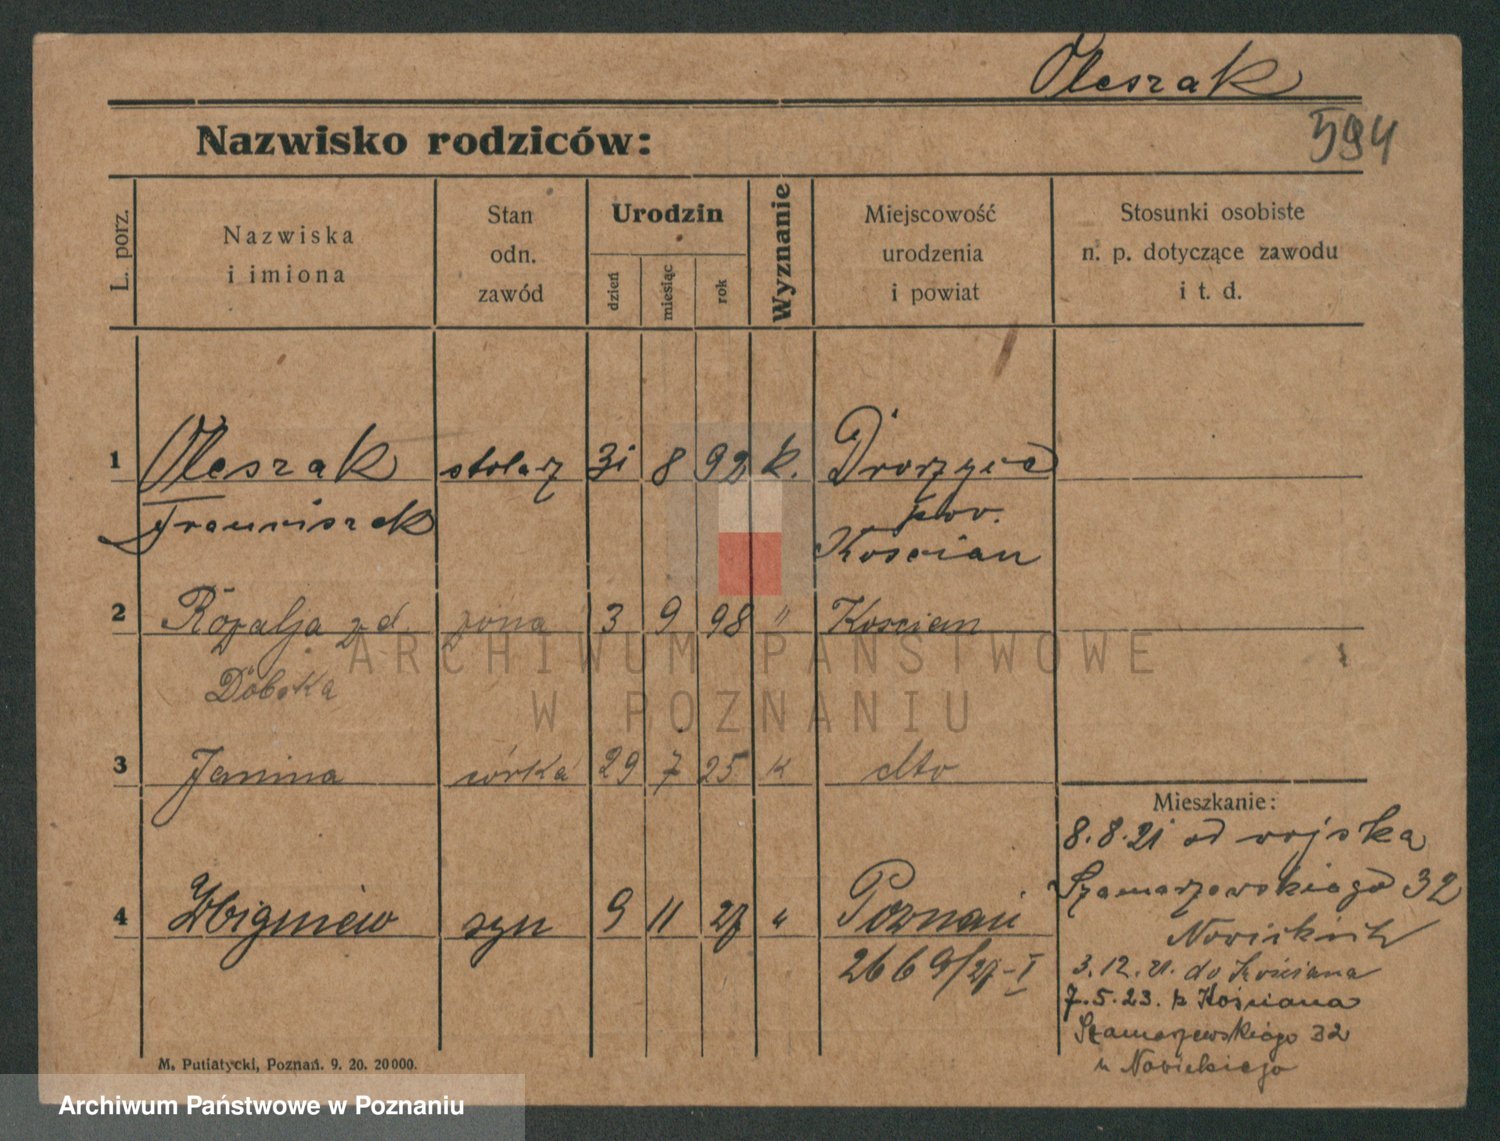 Oleszak
594
Nazwisko rodziców:
L. porz.
Nazwiska
i imiona
Stan
odn.
zawód
Urodzin
dzień
miesiąc
rok
Wyznanie
Miejscowość
urodzenia
i powiat
Stosunki osobiste
n. p. dotyczące zawodu
i t. d.
1 Oleszak stolarz 31 8 92 k.
Franciszek
pow.
Kościan
2 Rozalja z d. żona 3 9 98 " Kościan
3 Janina córka 29 7 25 k dto
4 Zbigniew syn 9 11 27 " Poznań
2669/27-I
Mieszkanie:
8.8.21 od wojska
Szamarzewskiego 32
3.12.21. do Kościana
7.5.23. z Kościana
Szamarzewskiego 32
u Nowickiego
M. Putiatycki, Poznań. 9. 20. 20 000.
ARCHIWUM PAŃSTWOWE
W POZNANIU
Archiwum Państwowe w Poznaniu